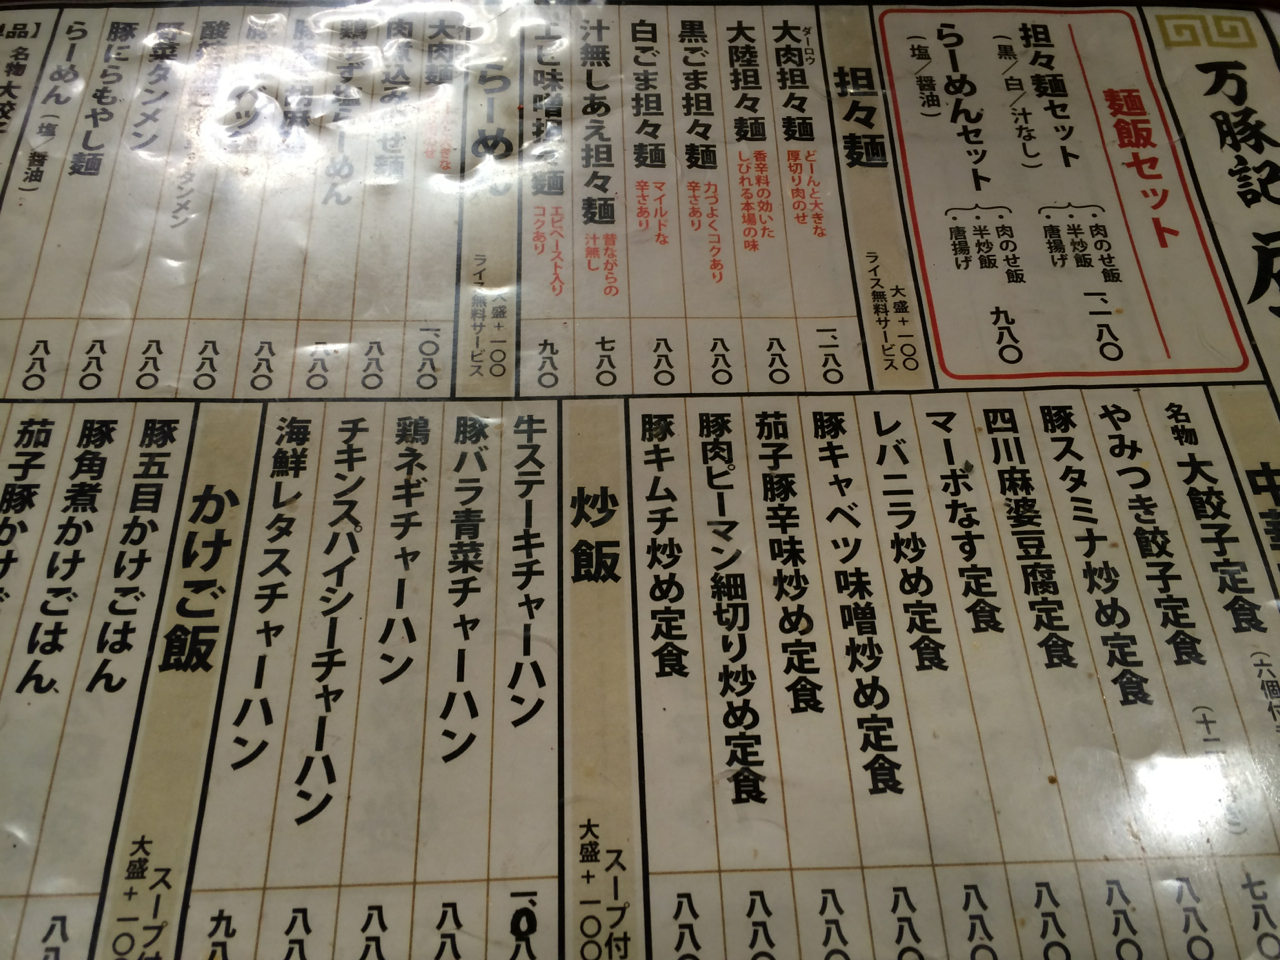 万豚記
麺飯セット
担々麺セット
（黒／白／汁なし）
・肉のせ飯
・半炒飯
・唐揚げ
一、一八〇
らーめんセット
（塩／醤油）
・肉のせ飯
・半炒飯
・唐揚げ
九八〇
担々麺
大盛＋一〇〇
ライス無料サービス
大肉担々麺
ダーロウ
どーんと大きな
厚切り肉のせ
一、一八〇
大陸担々麺
香辛料の効いた
しびれる本場の味
八八〇
黒ごま担々麺
力づよくコクあり
辛さあり
八八〇
白ごま担々麺
マイルドな
辛さあり
八八〇
汁無しあえ担々麺
昔ながらの
汁無し
七八〇
味噌担々麺
エビペースト入り
コクあり
九八〇
らーめん
大盛＋一〇〇
ライス無料サービス
大肉麺
一、〇八〇
八八〇
八八〇
八八〇
タンメン
八八〇
野菜タンメン
八八〇
豚にらもやし麺
八八〇
らーめん（塩／醤油）
八八〇
名物大餃子
名物 大餃子定食
七八〇
やみつき餃子定食
八八〇
豚スタミナ炒め定食
八八〇
四川麻婆豆腐定食
八八〇
マーボなす定食
八八〇
レバニラ炒め定食
八八〇
豚キャベツ味噌炒め定食
八八〇
茄子豚辛味炒め定食
八八〇
豚肉ピーマン細切り炒め定食
八八〇
豚キムチ炒め定食
八八〇
炒飯
スープ付
大盛＋一〇〇
牛ステーキチャーハン
一、〇八
豚バラ青菜チャーハン
八八
鶏ネギチャーハン
八八
チキンスパイシーチャーハン
八八
海鮮レタスチャーハン
九八
かけご飯
スープ付
大盛＋一〇〇
豚五目かけごはん
八八
豚角煮かけごはん
茄子豚かけご